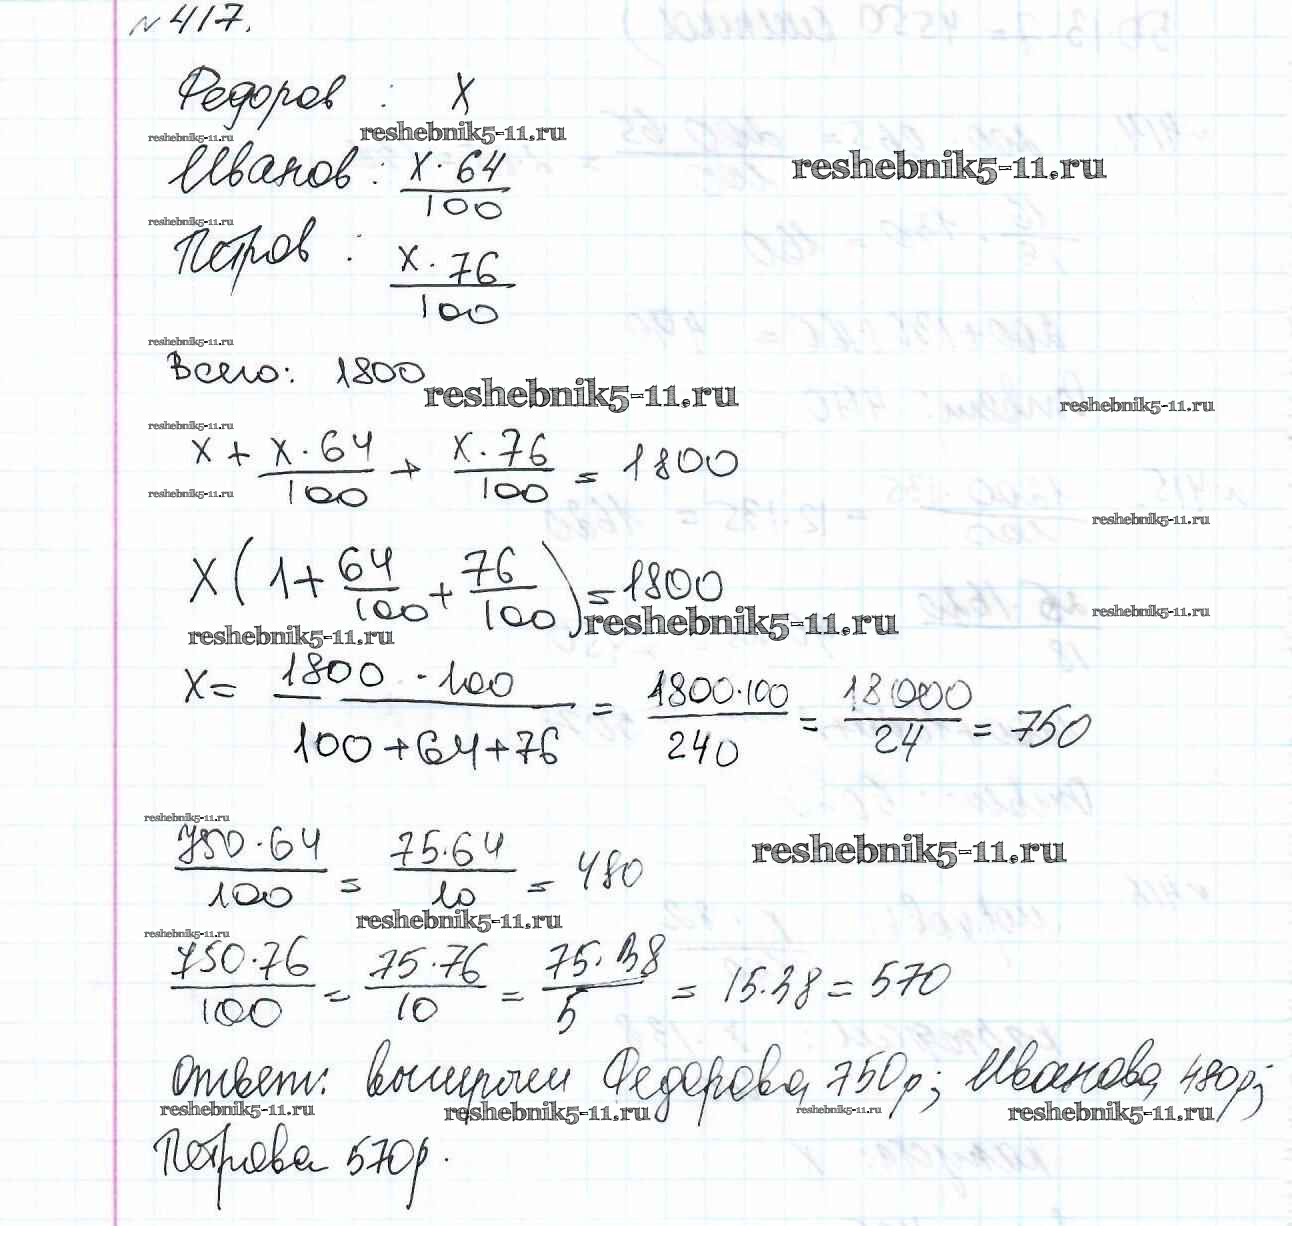 № 417.
Федоров : x
reshebnik5-11.ru reshebnik5-11.ru
Иванов : x · 64 / 100
reshebnik5-11.ru
reshebnik5-11.ru
Петров : x · 76 / 100
reshebnik5-11.ru
Всего: 1800
reshebnik5-11.ru
reshebnik5-11.ru
reshebnik5-11.ru
x + x · 64 / 100 + x · 76 / 100 = 1800
reshebnik5-11.ru
reshebnik5-11.ru
x ( 1 + 64 / 100 + 76 / 100 ) = 1800
reshebnik5-11.ru reshebnik5-11.ru reshebnik5-11.ru
x = 1800 · 100 / 100 + 64 + 76 = 1800 · 100 / 240 = 18000 / 24 = 750
reshebnik5-11.ru
750 · 64 / 100 = 75 · 64 / 10 = 480
reshebnik5-11.ru
reshebnik5-11.ru
reshebnik5-11.ru
750 · 76 / 100 = 75 · 76 / 10 = 75 · 38 / 5 = 15 · 38 = 570
Ответ: Федорова 750р; Иванова 480р;
reshebnik5-11.ru reshebnik5-11.ru reshebnik5-11.ru reshebnik5-11.ru
Петрова 570р.